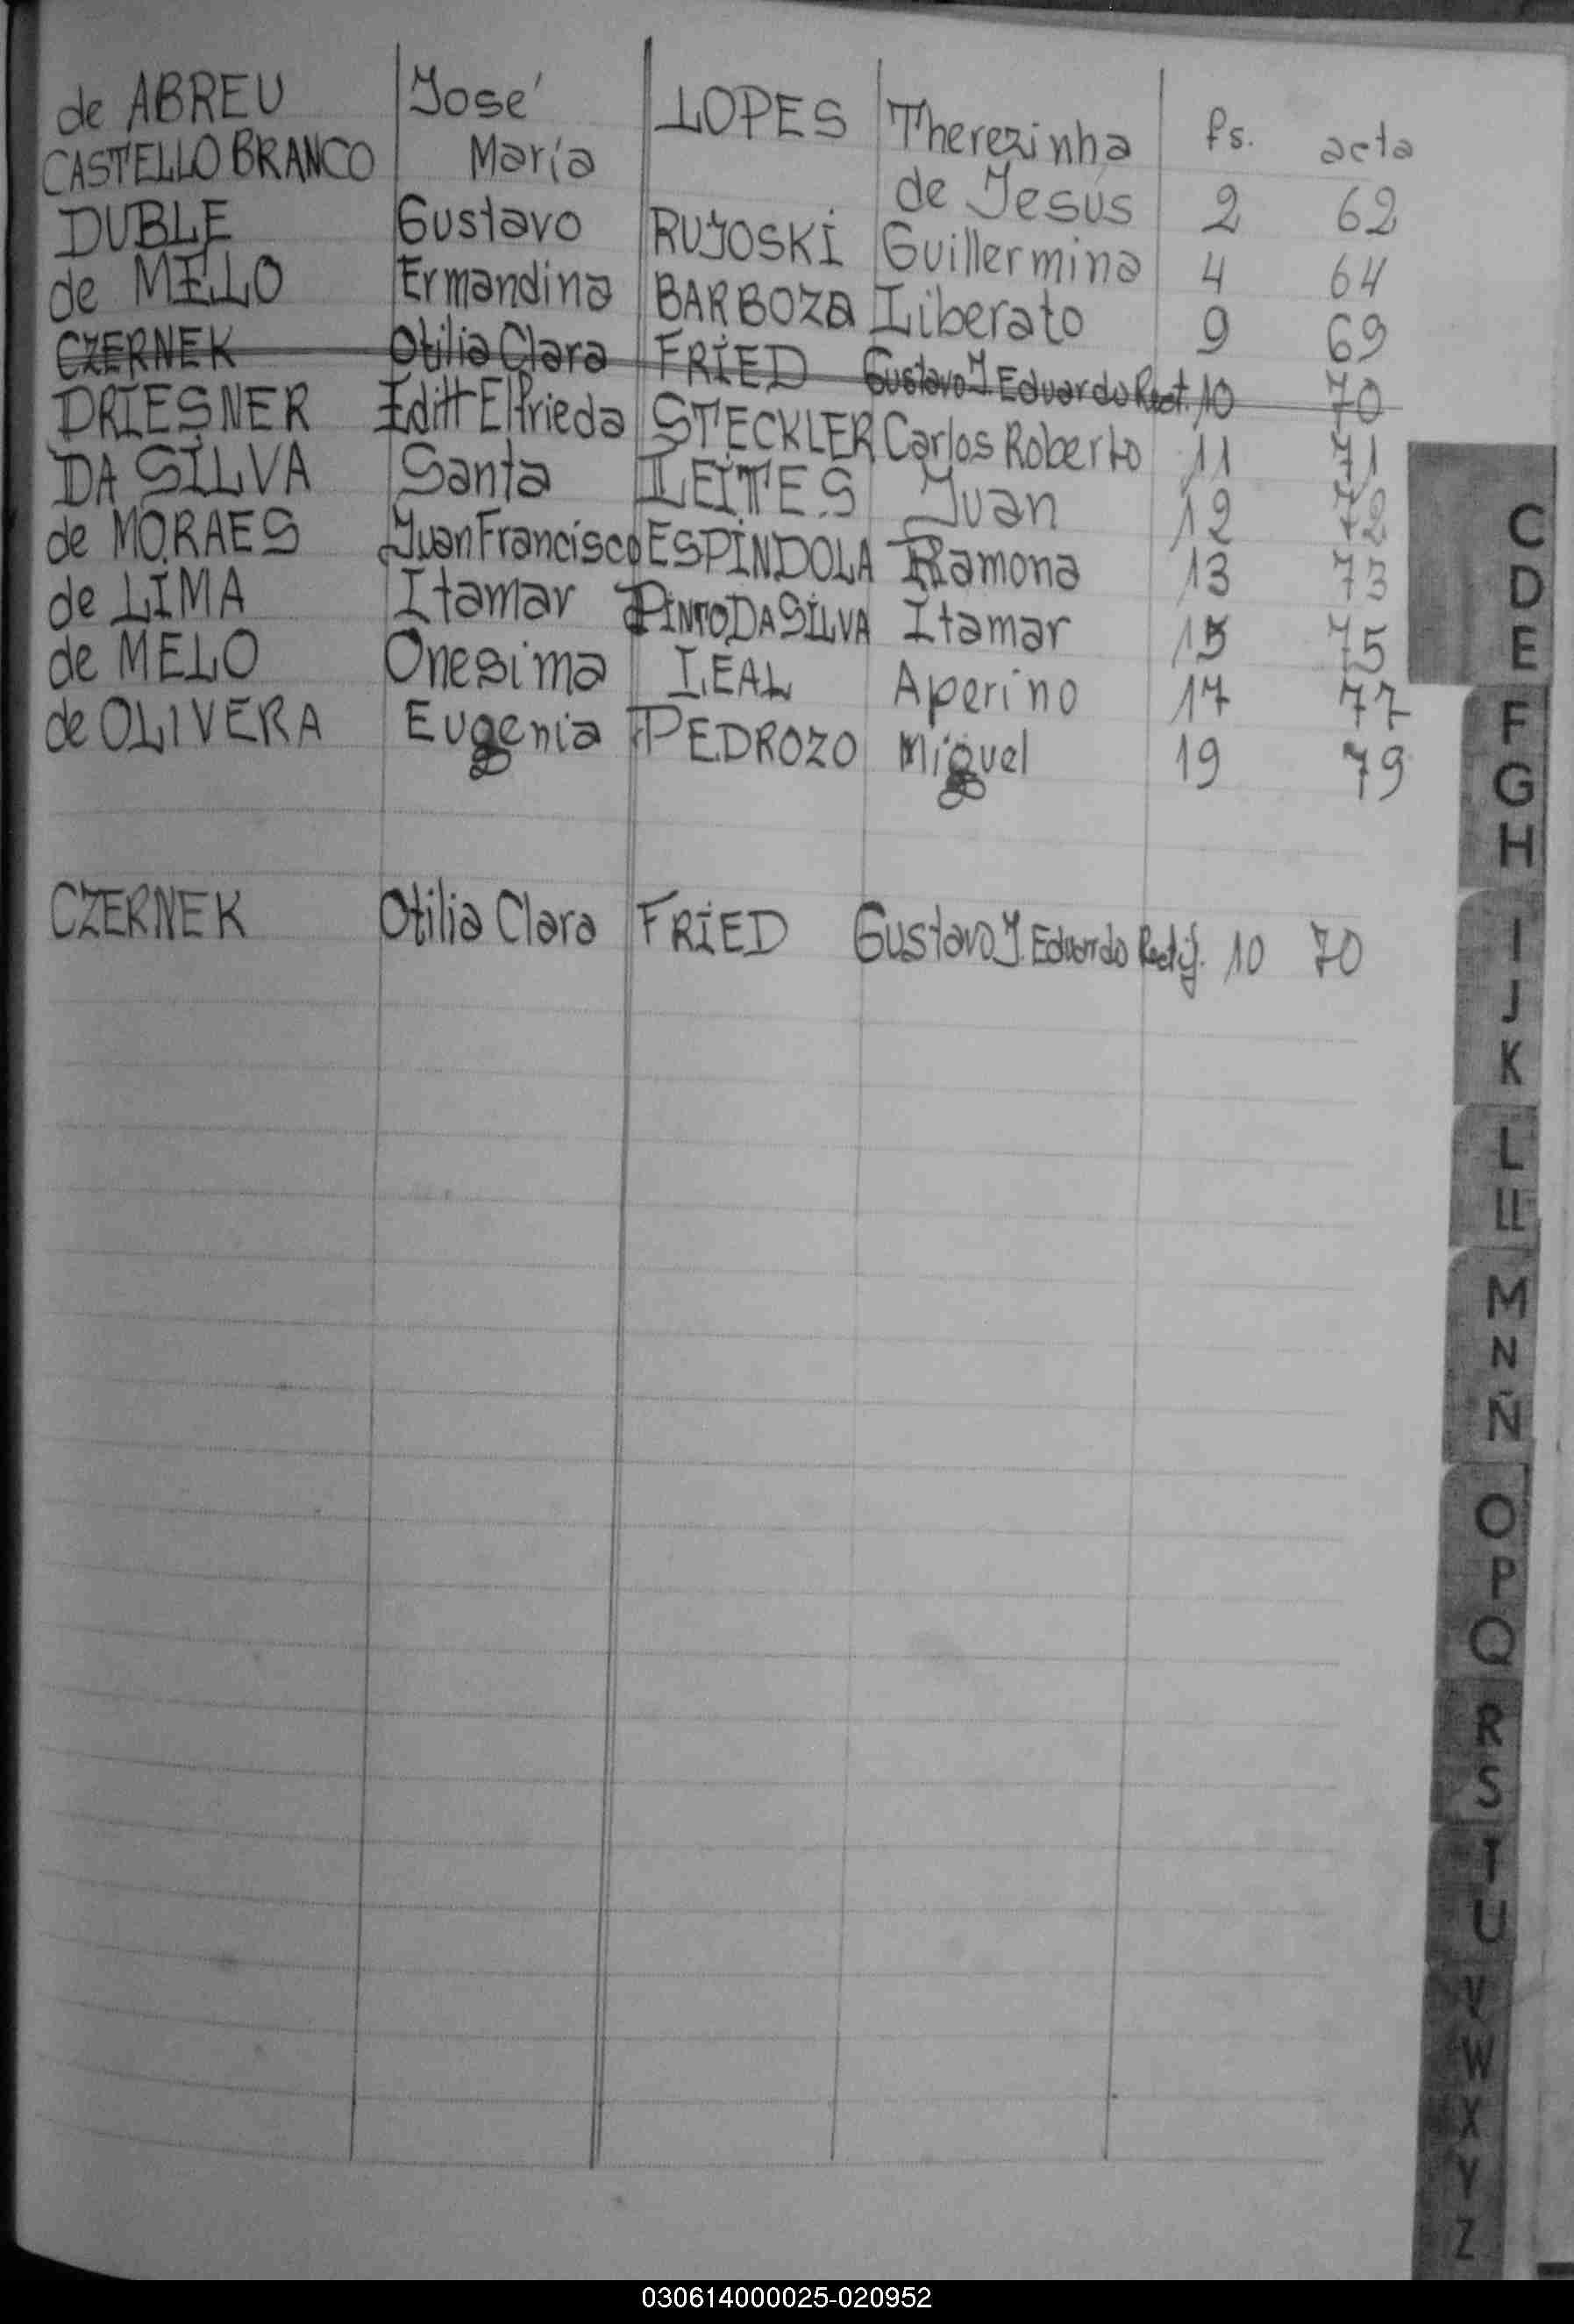 de ABREU José LOPES Therezinha fs. acta
CASTELLO BRANCO María de Jesús 2 62
DUBLE Gustavo RUJOSKI Guillermina 4 64
de MELO Ermandina BARBOZA Liberato 9 69
CZERNEK Otilia Clara FRIED Gustavo J. Eduardo Rect. 10 70
DRIESNER Editt Elfrieda STECKLER Carlos Roberto 11 71
DA SILVA Santa LEITES Juan 12 72
de MORAES Juan Francisco ESPINDOLA Ramona 13 73
de LIMA Itamar PINTO DA SILVA Itamar 15 75
de MELO Onesima LEAL Aperino 17 77
de OLIVERA Eugenia PEDROZO Miguel 19 79
CZERNEK Otilia Clara FRIED Gustavo J. Eduardo Rectif. 10 70
C
D
E
F
G
H
I
J
K
L
LL
M
N
Ñ
O
P
Q
R
S
T
U
V
W
X
Y
Z
030614000025-020952